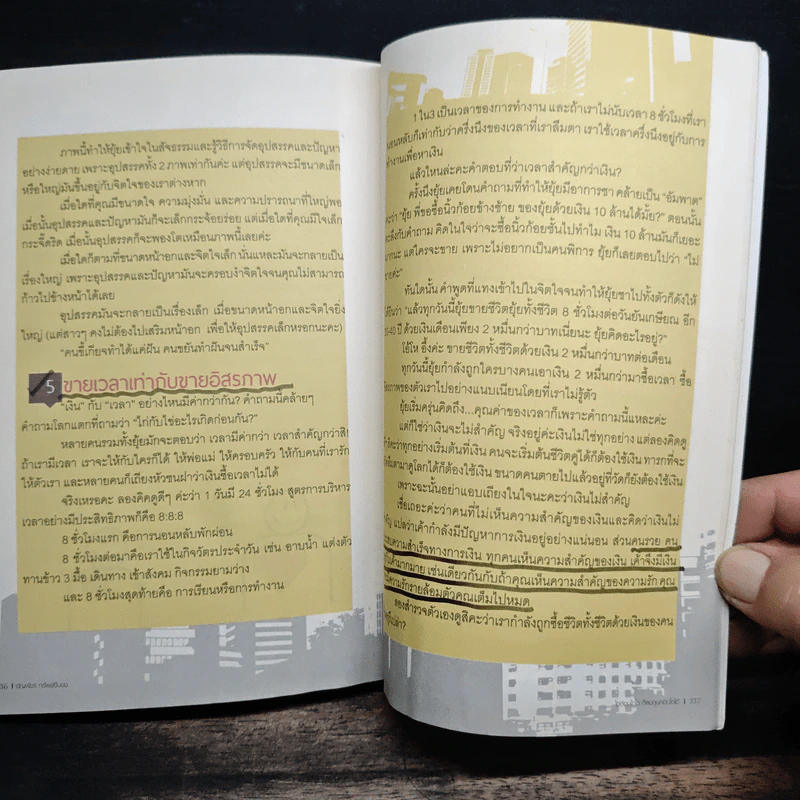 ภาพนี้ทำให้ยุ้ยเข้าใจในสัจธรรมและรู้วิธีการจัดอุปสรรคและปัญหา
อย่างง่ายดาย เพราะอุปสรรคทั้ง 2 ภาพเท่ากันค่ะ แต่อุปสรรคจะมีขนาดเล็ก
หรือใหญ่มันขึ้นอยู่กับจิตใจของเราต่างหาก
เมื่อใดที่คุณมีขนาดใจ ความมุ่งมั่น และความปรารถนาที่ใหญ่พอ
เมื่อนั้นอุปสรรคและปัญหามันก็จะเล็กกระจ้อยร่อย แต่เมื่อใดที่คุณมีใจเล็ก
กระจี๊ดริด เมื่อนั้นอุปสรรคก็จะพองโตเหมือนภาพนี้เลยค่ะ
เมื่อใดก็ตามที่ขนาดหน้าอกและจิตใจเล็ก นั่นแหละมันจะกลายเป็น
เรื่องใหญ่ เพราะอุปสรรคและปัญหามันจะครอบงำจิตใจจนคุณไม่สามารถ
ก้าวไปข้างหน้าได้เลย
อุปสรรคมันจะกลายเป็นเรื่องเล็ก เมื่อขนาดหน้าอกและจิตใจยิ่ง
ใหญ่ (แต่สาวๆ คงไม่ต้องไปเสริมหน้าอก เพื่อให้อุปสรรคเล็กหรอกนะคะ)
"คนขี้เกียจทำได้แค่ฝัน คนขยันทำฝันจนสำเร็จ"
5 ขายเวลาเท่ากับขายอิสรภาพ
"เงิน" กับ "เวลา" อย่างไหนมีค่ากว่ากัน? คำถามนี้คล้ายๆ
คำถามโลกแตกที่ถามว่า "ไก่กับไข่อะไรเกิดก่อนกัน?"
หลายคนรวมทั้งยุ้ยมักจะตอบว่า เวลามีค่ากว่า เวลาสำคัญกว่าสิ
ถ้าเรามีเวลา เราจะให้กับใครก็ได้ ให้พ่อแม่ ให้ครอบครัว ให้กับคนที่เรารัก
ให้ตัวเรา และหลายคนก็เถียงหัวชนฝาว่าเงินซื้อเวลาไม่ได้
จริงเหรอคะ ลองคิดดูดีๆ ค่ะว่า 1 วันมี 24 ชั่วโมง สูตรการบริหาร
เวลาอย่างมีประสิทธิภาพก็คือ 8:8:8
8 ชั่วโมงแรก คือการนอนหลับพักผ่อน
8 ชั่วโมงต่อมาคือเราใช้ในกิจวัตรประจำวัน เช่น อาบน้ำ แต่งตัว
ทานข้าว 3 มื้อ เดินทาง เข้าสังคม กิจกรรมยามว่าง
และ 8 ชั่วโมงสุดท้ายคือ การเรียนหรือการทำงาน
1 ใน3 เป็นเวลาของการทำงาน และถ้าเราไม่นับเวลา 8 ชั่วโมงที่เรา
นอนหลับก็เท่ากับว่าครึ่งนึงของเวลาที่เราลืมตา เราใช้เวลาครึ่งนึงอยู่กับการ
ทำงานเพื่อหาเงิน
แล้วไหนล่ะคะคำตอบที่ว่าเวลาสำคัญกว่าเงิน?
ครั้งนึงยุ้ยเคยโดนคำถามที่ทำให้ยุ้ยมีอาการชา คล้ายเป็น "อัมพาต"
ค่ะว่า "ยุ้ย พี่ขอซื้อนิ้วก้อยข้างซ้าย ของยุ้ยด้วยเงิน 10 ล้านได้มั้ย?" ตอนนั้น
ยุ้ยตะลึงกับคำถาม คิดในใจว่าจะซื้อนิ้วก้อยชั้นไปทำไม เงิน 10 ล้านมันก็เยอะ
มากนะ แต่ใครจะขาย เพราะไม่อยากเป็นคนพิการ ยุ้ยก็เลยตอบไปว่า "ไม่
ขายค่ะ"
ทันใดนั้น คำพูดที่แทงเข้าไปในจิตใจจนทำให้ยุ้ยชาไปทั้งตัวก็ดังให้
ได้ยินว่า "แล้วทุกวันนี้ยุ้ยขายชีวิตยุ้ยทั้งชีวิต 8 ชั่วโมงต่อวันยันเกษียณ อีก
-40 ปี ด้วยเงินเดือนเพียง 2 หมื่นกว่าบาทเนี่ยนะ ยุ้ยคิดอะไรอยู่?"
โอ้โห อึ้งค่ะ ขายชีวิตทั้งชีวิตด้วยเงิน 2 หมื่นกว่าบาทต่อเดือน
ทุกวันนี้ยุ้ยกำลังถูกใครบางคนเอาเงิน 2 หมื่นกว่ามาซื้อเวลา ซื้อ
อิสรภาพของตัวเราไปอย่างแนบเนียนโดยที่เราไม่รู้ตัว
ยุ้ยเริ่มครุ่นคิดถึง...คุณค่าของเวลาก็เพราะคำถามนี้แหละค่ะ
แต่ก็ใช่ว่าเงินจะไม่สำคัญ จริงอยู่ค่ะเงินไม่ใช่ทุกอย่าง แต่ลองคิดดู
ดีๆสิคะว่าทุกอย่างเริ่มต้นที่เงิน คนจะเริ่มต้นชีวิตคู่ได้ก็ต้องใช้เงิน ทารกที่จะ
ลืมตามาดูโลกได้ก็ต้องใช้เงิน ขนาดคนตายไปแล้วอยู่ที่วัดก็ยังต้องใช้เงิน
เพราะฉะนั้นอย่าแอบเถียงในใจนะคะว่าเงินไม่สำคัญ
เชื่อเถอะค่ะว่าคนที่ไม่เห็นความสำคัญของเงินและคิดว่าเงินไม่
สำคัญ แปลว่าเค้ากำลังมีปัญหาการเงินอยู่อย่างแน่นอน ส่วนคนรวย คน
ประสบความสำเร็จทางการเงิน ทุกคนเห็นความสำคัญของเงิน เค้าจึงมีเงิน
เข้ามามากมาย เช่นเดียวกันกับถ้าคุณเห็นความสำคัญของความรัก คุณ
มีความรักรายล้อมตัวคุณเต็มไปหมด
ลองสำรวจตัวเองดูสิคะว่าเรากำลังถูกซื้อชีวิตทั้งชีวิตด้วยเงินของคน